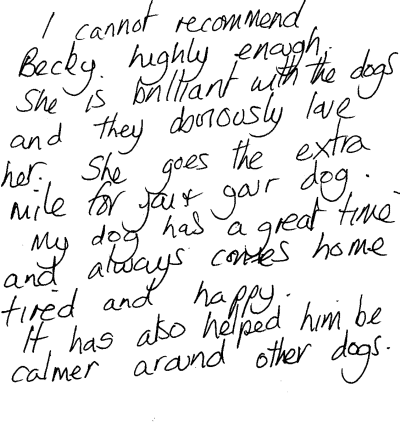 I cannot recommend
Becky. highly enough.
She is brilliant with the dogs
and they obviously love
her. She goes the extra
mile for you & your dog.
My dog has a great time
and always comes home
tired and happy.
It has also helped him be
calmer around other dogs.